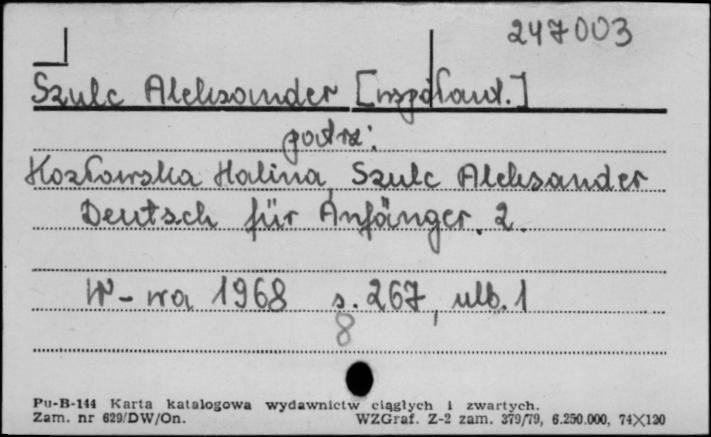 247003
Szulc Aleksander [współaut.]
podrz:
Kozłowska Halina, Szulc Aleksander
Deutsch für Anfänger. 2.
W-wa 1968 s. 267, ulb. 1
8
Pu-B-144 Karta katalogowa wydawnictw ciągłych i zwartych.
Zam. nr 629/DW/On. WZGraf. Z-2 zam. 379/79, 6.250.000, 74×120